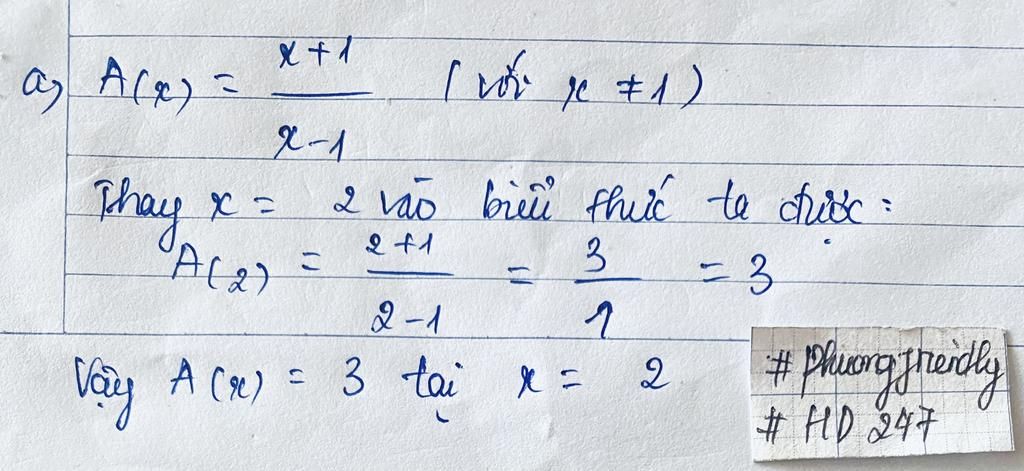 a) A(x) = \frac{x+1}{x-1} (với x ≠ 1)
Thay x = 2 vào biểu thức ta được:
A(2) = \frac{2+1}{2-1} = \frac{3}{1} = 3
Vậy A(x) = 3 tại x = 2
# phuongfriendly
# HD 247